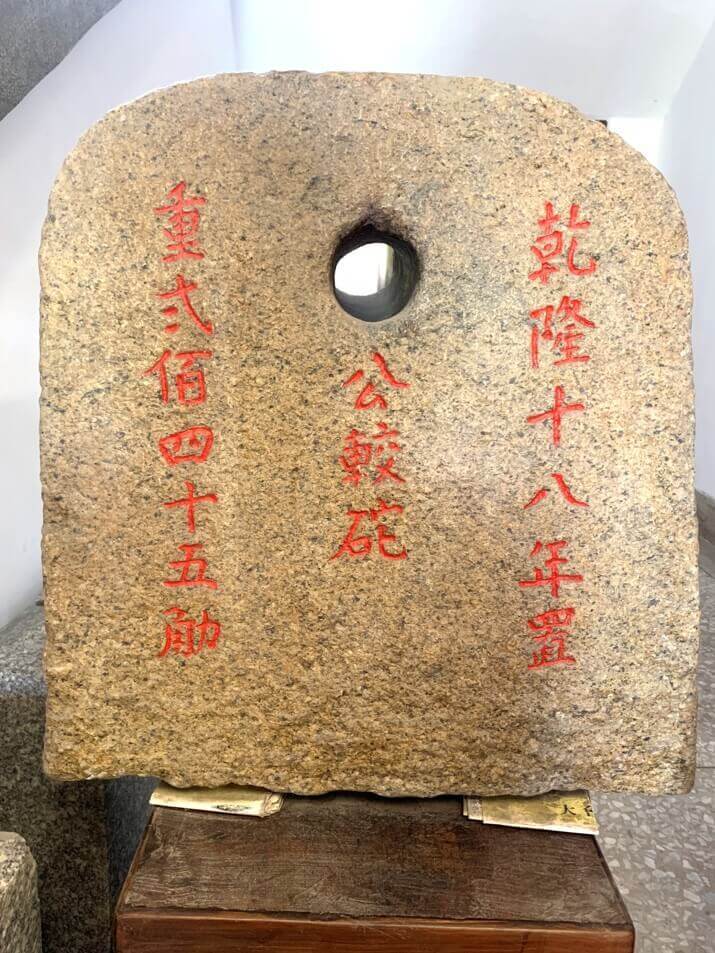 乾隆十八年置
公較砣
重弍佰四十五觔